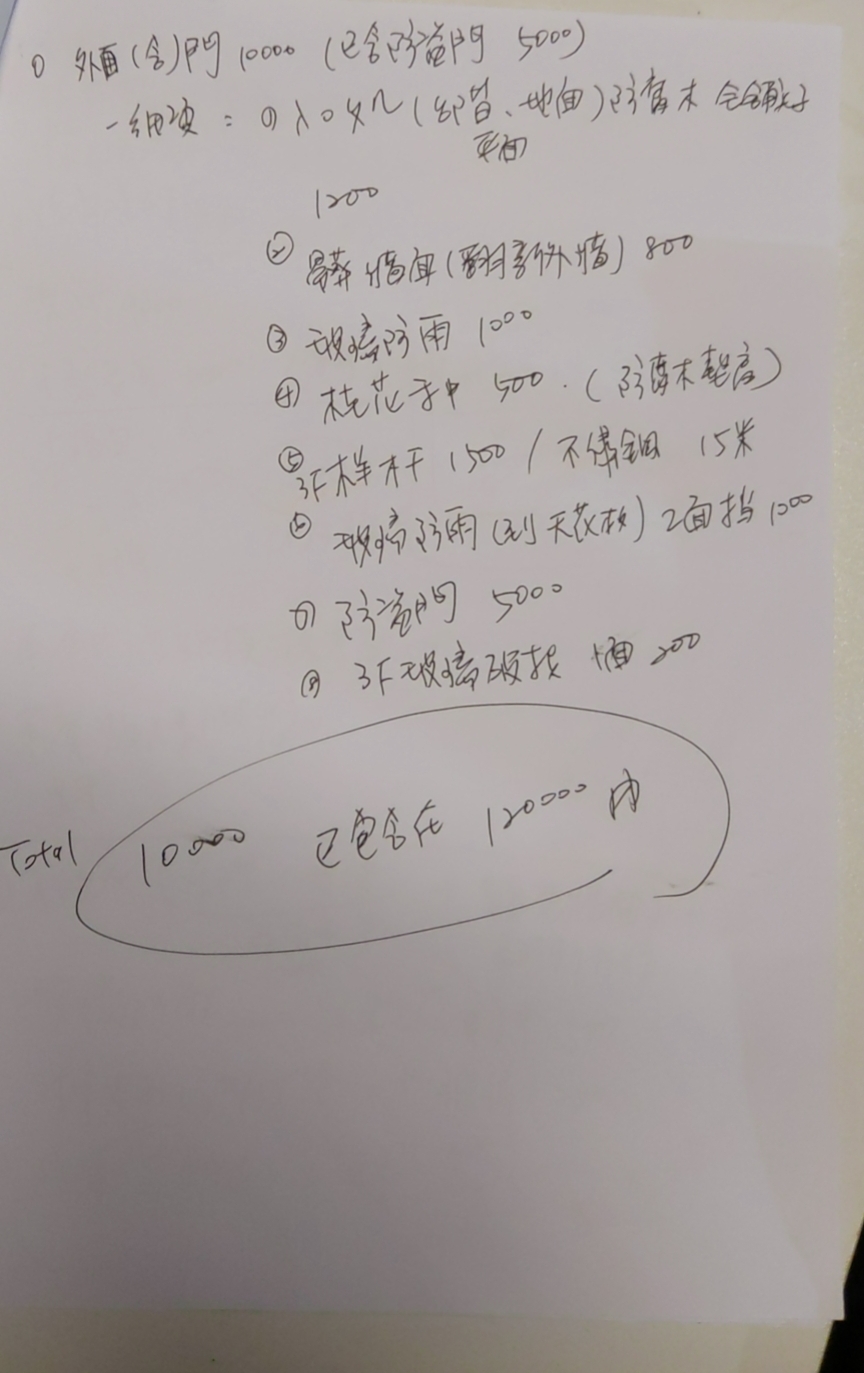 ① 外面(含)門 10000 (已含防盜門 5000)
一細項: ① 入口 (台階、地面) 防腐木 全舖
平面
1200
② 牆面(翻新外牆) 800
③ 玻璃防雨 1000
④ 桂花 500. (防腐木墊高)
⑤ 3F 杆 1500 / 不銹鋼 15米
⑥ 玻璃防雨(到天花板) 2面擋 1000
⑦ 防盜門 5000
⑧ 3F玻璃破損 200
Total 10000 已包含在 120000 內